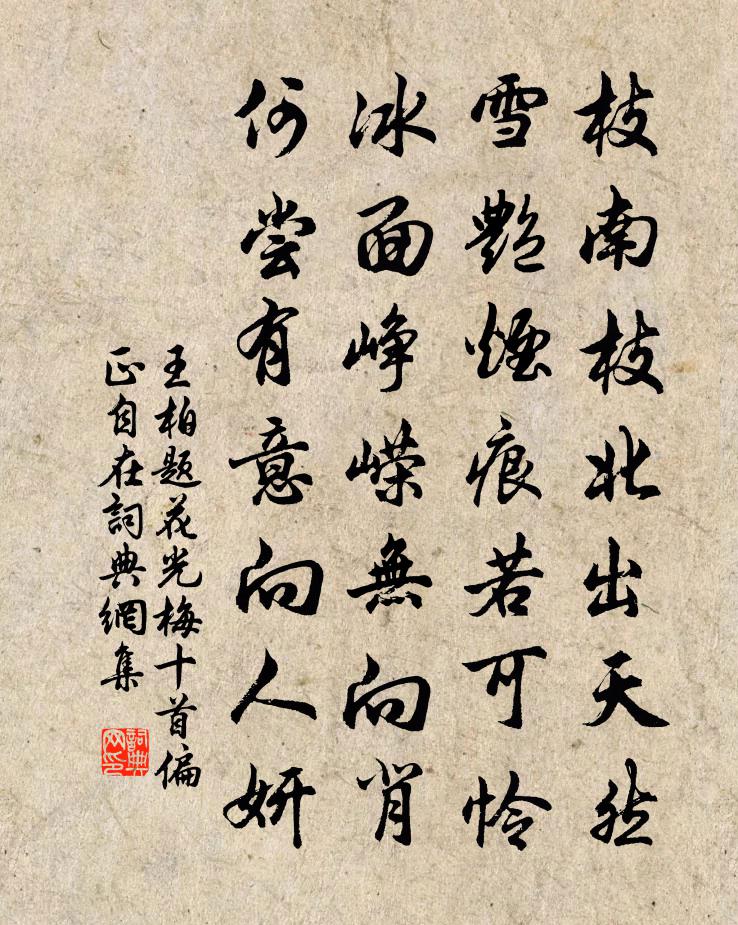 枝南枝北出天然
雪艷煙痕若可怜
冰面峥嶸無向背
何尝有意向人妍
王柏题花光梅十首偏
正自在詞典網集
詞典网印